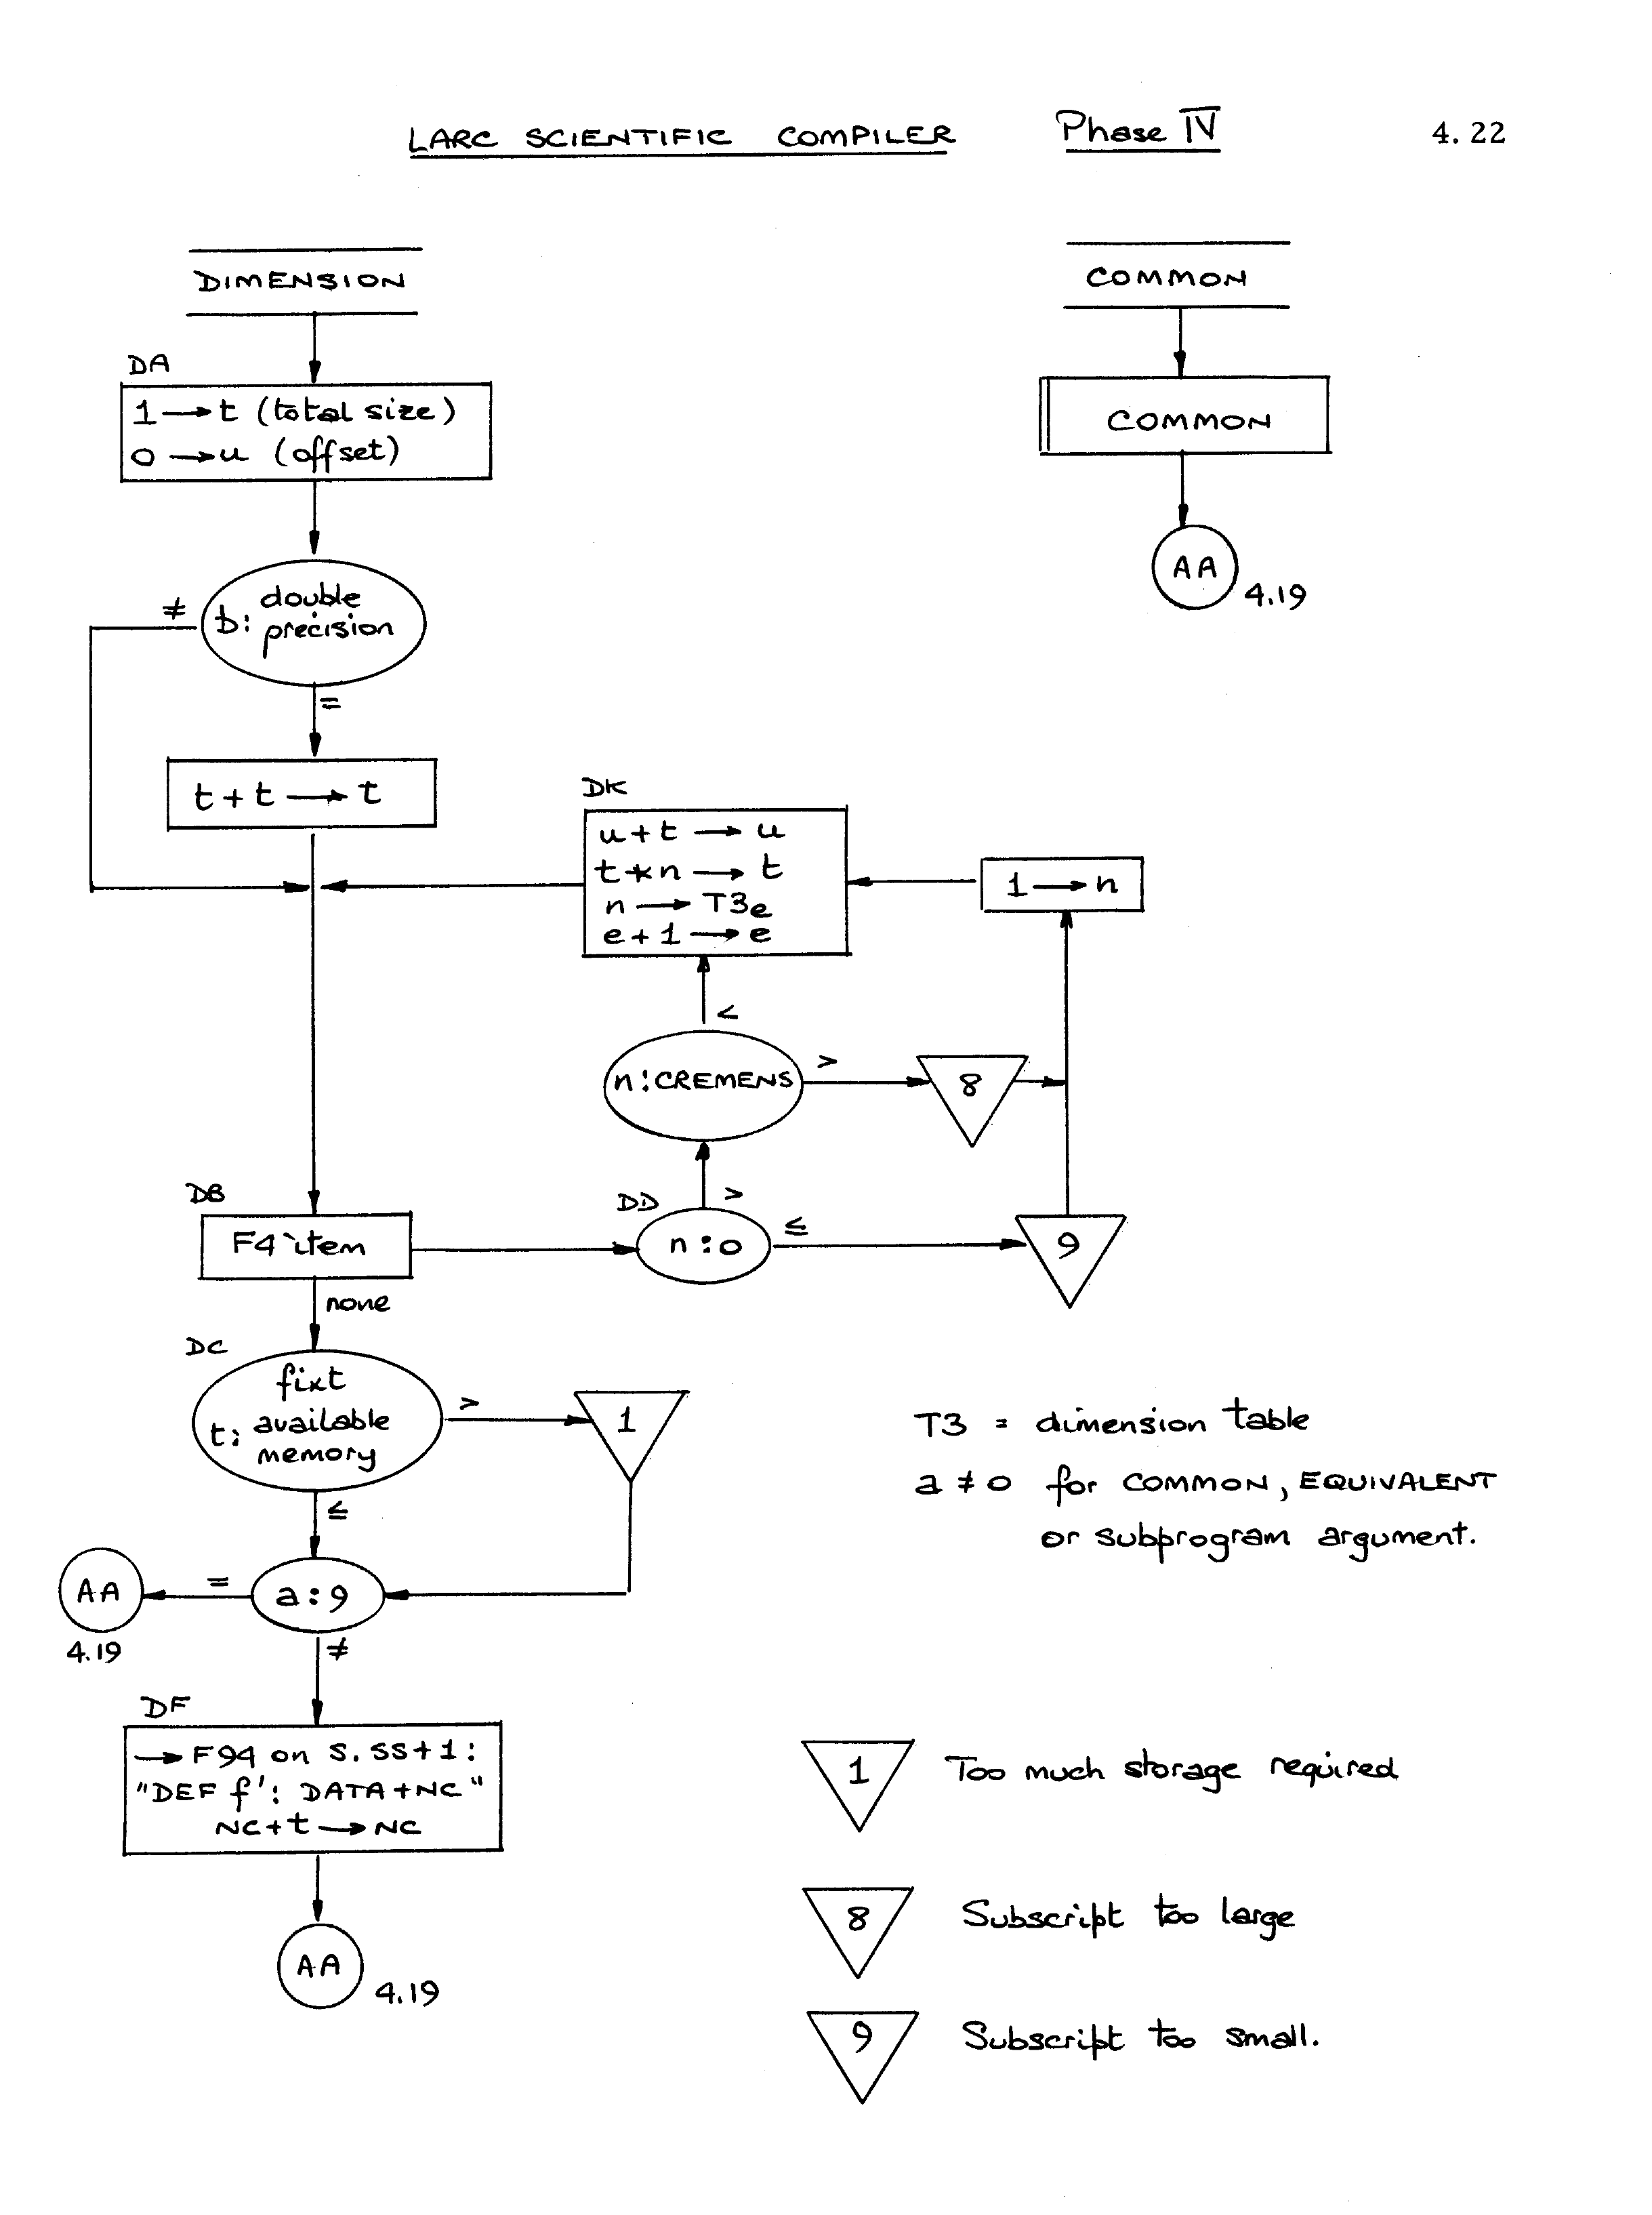 LARC SCIENTIFIC COMPILER Phase IV 4.22
DIMENSION
DA
1 → t (total size)
0 → u (offset)
b: double
precision
≠
=
t + t → t
DK
u + t → u
t * n → t
n → T3e
e + 1 → e
1 → n
<
n : CREMENS
>
8
DB
F4 item
DD
>
n : 0
≤
9
none
DC
fixt
t: available
memory
>
1
≤
AA
4.19
=
a : 9
≠
DF
→ F94 on S.SS+1:
"DEF f': DATA+NC"
NC+t → NC
AA
4.19
COMMON
COMMON
AA
4.19
T3 = dimension table
a ≠ 0 for COMMON, EQUIVALENT
or subprogram argument.
1 Too much storage required
8 Subscript too large
9 Subscript too small.